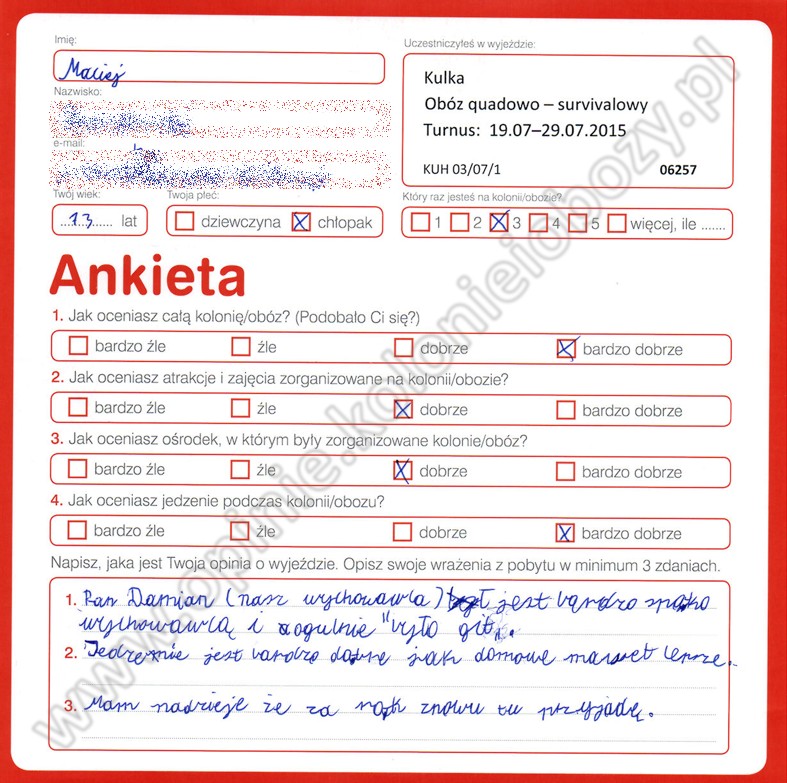 Imię:
Maciej
Nazwisko:
e-mail:
Twój wiek:
13 lat
Twoja płeć:
dziewczyna chłopak
Uczestniczyłeś w wyjeździe:
Kulka
Obóz quadowo – survivalowy
Turnus: 19.07–29.07.2015
KUH 03/07/1 06257
Który raz jesteś na kolonii/obozie?
1 2 3 4 5 więcej, ile .......
Ankieta
1. Jak oceniasz całą kolonię/obóz? (Podobało Ci się?)
bardzo źle źle dobrze bardzo dobrze
2. Jak oceniasz atrakcje i zajęcia zorganizowane na kolonii/obozie?
bardzo źle źle dobrze bardzo dobrze
3. Jak oceniasz ośrodek, w którym były zorganizowane kolonie/obóz?
bardzo źle źle dobrze bardzo dobrze
4. Jak oceniasz jedzenie podczas kolonii/obozu?
bardzo źle źle dobrze bardzo dobrze
Napisz, jaka jest Twoja opinia o wyjeździe. Opisz swoje wrażenia z pobytu w minimum 3 zdaniach.
1. Pan Damian (nasz wychowawca) jest bardzo spoko
wychowawcą i ogulnie "było git".
2. Jedzenie jest bardzo dobre jak domowe nawet lepsze.
3. Mam nadzieje że za rok znowu tu przyjadę.
www.opinie.kolonieiobozy.pl